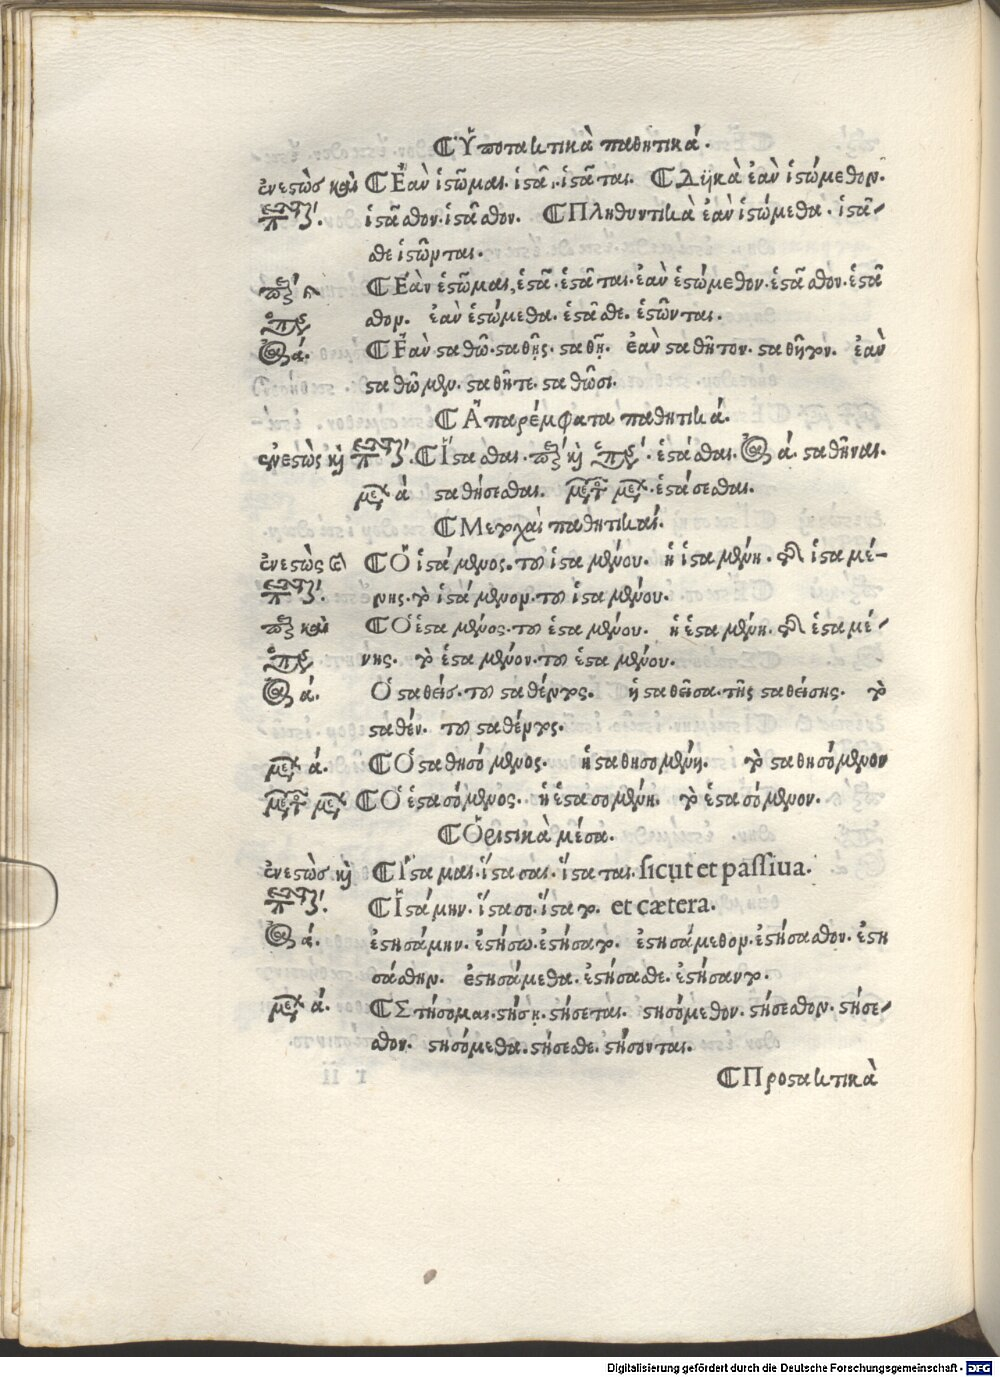 Ὑποτακτικὰ παθητικά.
ἐνεστὼσ καὶ Ἐὰν ἱστῶμαι. ἱστᾶι. ἱστᾶται. Δυϊκὰ ἐὰν ἱστώμεθον.
ἱστᾶσθον. ἱστᾶσθον. Πληθυντικὰ ἐὰν ἱστώμεθα. ἱστᾶ-
σθε ἱστῶνται.
Ἐὰν ἑστῶμαι, ἑστᾶ. ἑστᾶται. ἐὰν ἑστώμεθον. ἑστᾶσθον. ἑστᾶ
σθον. ἐὰν ἑστώμεθα. ἑστᾶσθε. ἑστῶνται.
Ἐὰν σταθῶ. σταθῆς. σταθῇ. ἐὰν σταθῆτον. σταθῆτον. ἐὰν
σταθῶμεν. σταθῆτε. σταθῶσι.
Ἀπαρέμφατα παθητικά.
ἐνεστὼς καὶ Ἵστασθαι. καὶ ἑστάσθαι. ά. σταθῆναι.
ά σταθήσεσθαι. ἑστάσεσθαι.
Μετοχαὶ παθητικαί.
ἐνεστὼς Ὁ ἱστάμενος. τοῦ ἱσταμένου. ἡ ἱσταμένη. τῆς ἱσταμέ-
νης. τὸ ἱστάμενον. τοῦ ἱσταμένου.
καὶ Ὁ ἑσταμένος. τοῦ ἑσταμένου. ἡ ἑσταμένη. τῆς ἑσταμέ-
νης. τὸ ἑσταμένον. τοῦ ἑσταμένου.
ά. Ὁ σταθείσ. τοῦ σταθέντος. ἡ σταθεῖσα. τῆς σταθείσης. τὸ
σταθέν. τοῦ σταθέντος.
ά. Ὁ σταθησόμενος. ἡ σταθησομένη. τὸ σταθησόμενον
Ὁ ἑστασόμενος. ἡ ἑστασομένη. τὸ ἑστασόμενον.
Ὁριστικὰ μέσα.
ἐνεστὼσ καὶ Ἵσταμαι. ἵστασαι. ἵσταται. sicut et passiua.
Ἱστάμην. ἵστασο. ἵστατο. et cætera.
ά. ἐστησάμην. ἐστήσω. ἐστήσατο. ἐστησάμεθον. ἐστήσασθον. ἐστη
σάσθην. ἐστησάμεθα. ἐστήσασθε. ἐστήσαντο.
ά. Στήσομαι. στήσῃ. στήσεται. στησόμεθον. στήσεσθον. στήσε-
σθον. στησόμεθα. στήσεσθε. στήσονται.
Προστακτικὰ
Digitalisierung gefördert durch die Deutsche Forschungsgemeinschaft - DFG